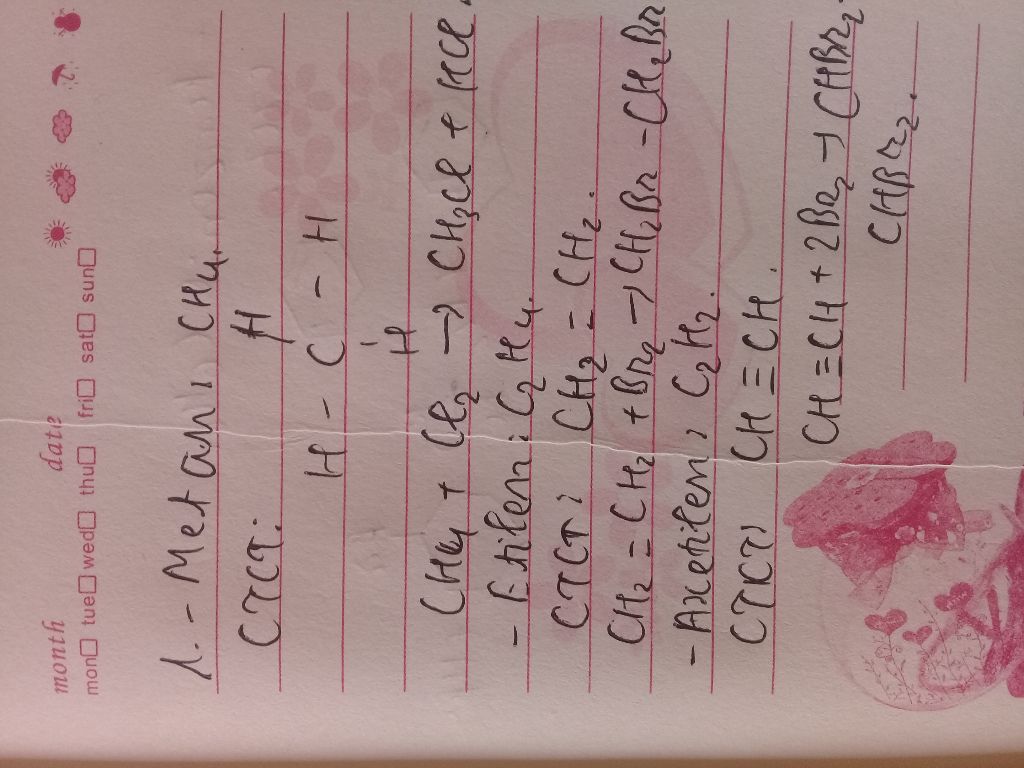 month date
mon tue wed thu fri sat sun
1. - Metan: CH₄.
CTCT: H
H - C - H
H
CH₄ + Cl₂ → CH₃Cl + HCl.
- Etilen: C₂H₄.
CTCT: CH₂ = CH₂.
CH₂ = CH₂ + Br₂ → CH₂Br - CH₂Br
- Axetilen: C₂H₂.
CTCT: CH ≡ CH.
CH ≡ CH + 2Br₂ → CHBr₂ -
CHBr₂.